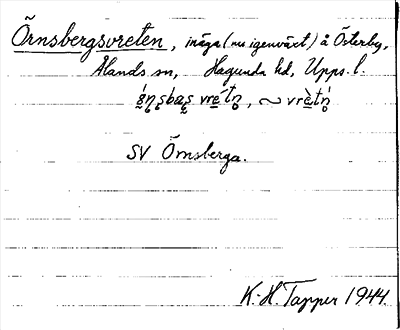 Örnsbergsvreten, inäga (nu igenväxt) å Österby,
Ålands sn, Hagunda hd, Upps. l.
SV Örnsberga.
K.-H. Tapper 1944.